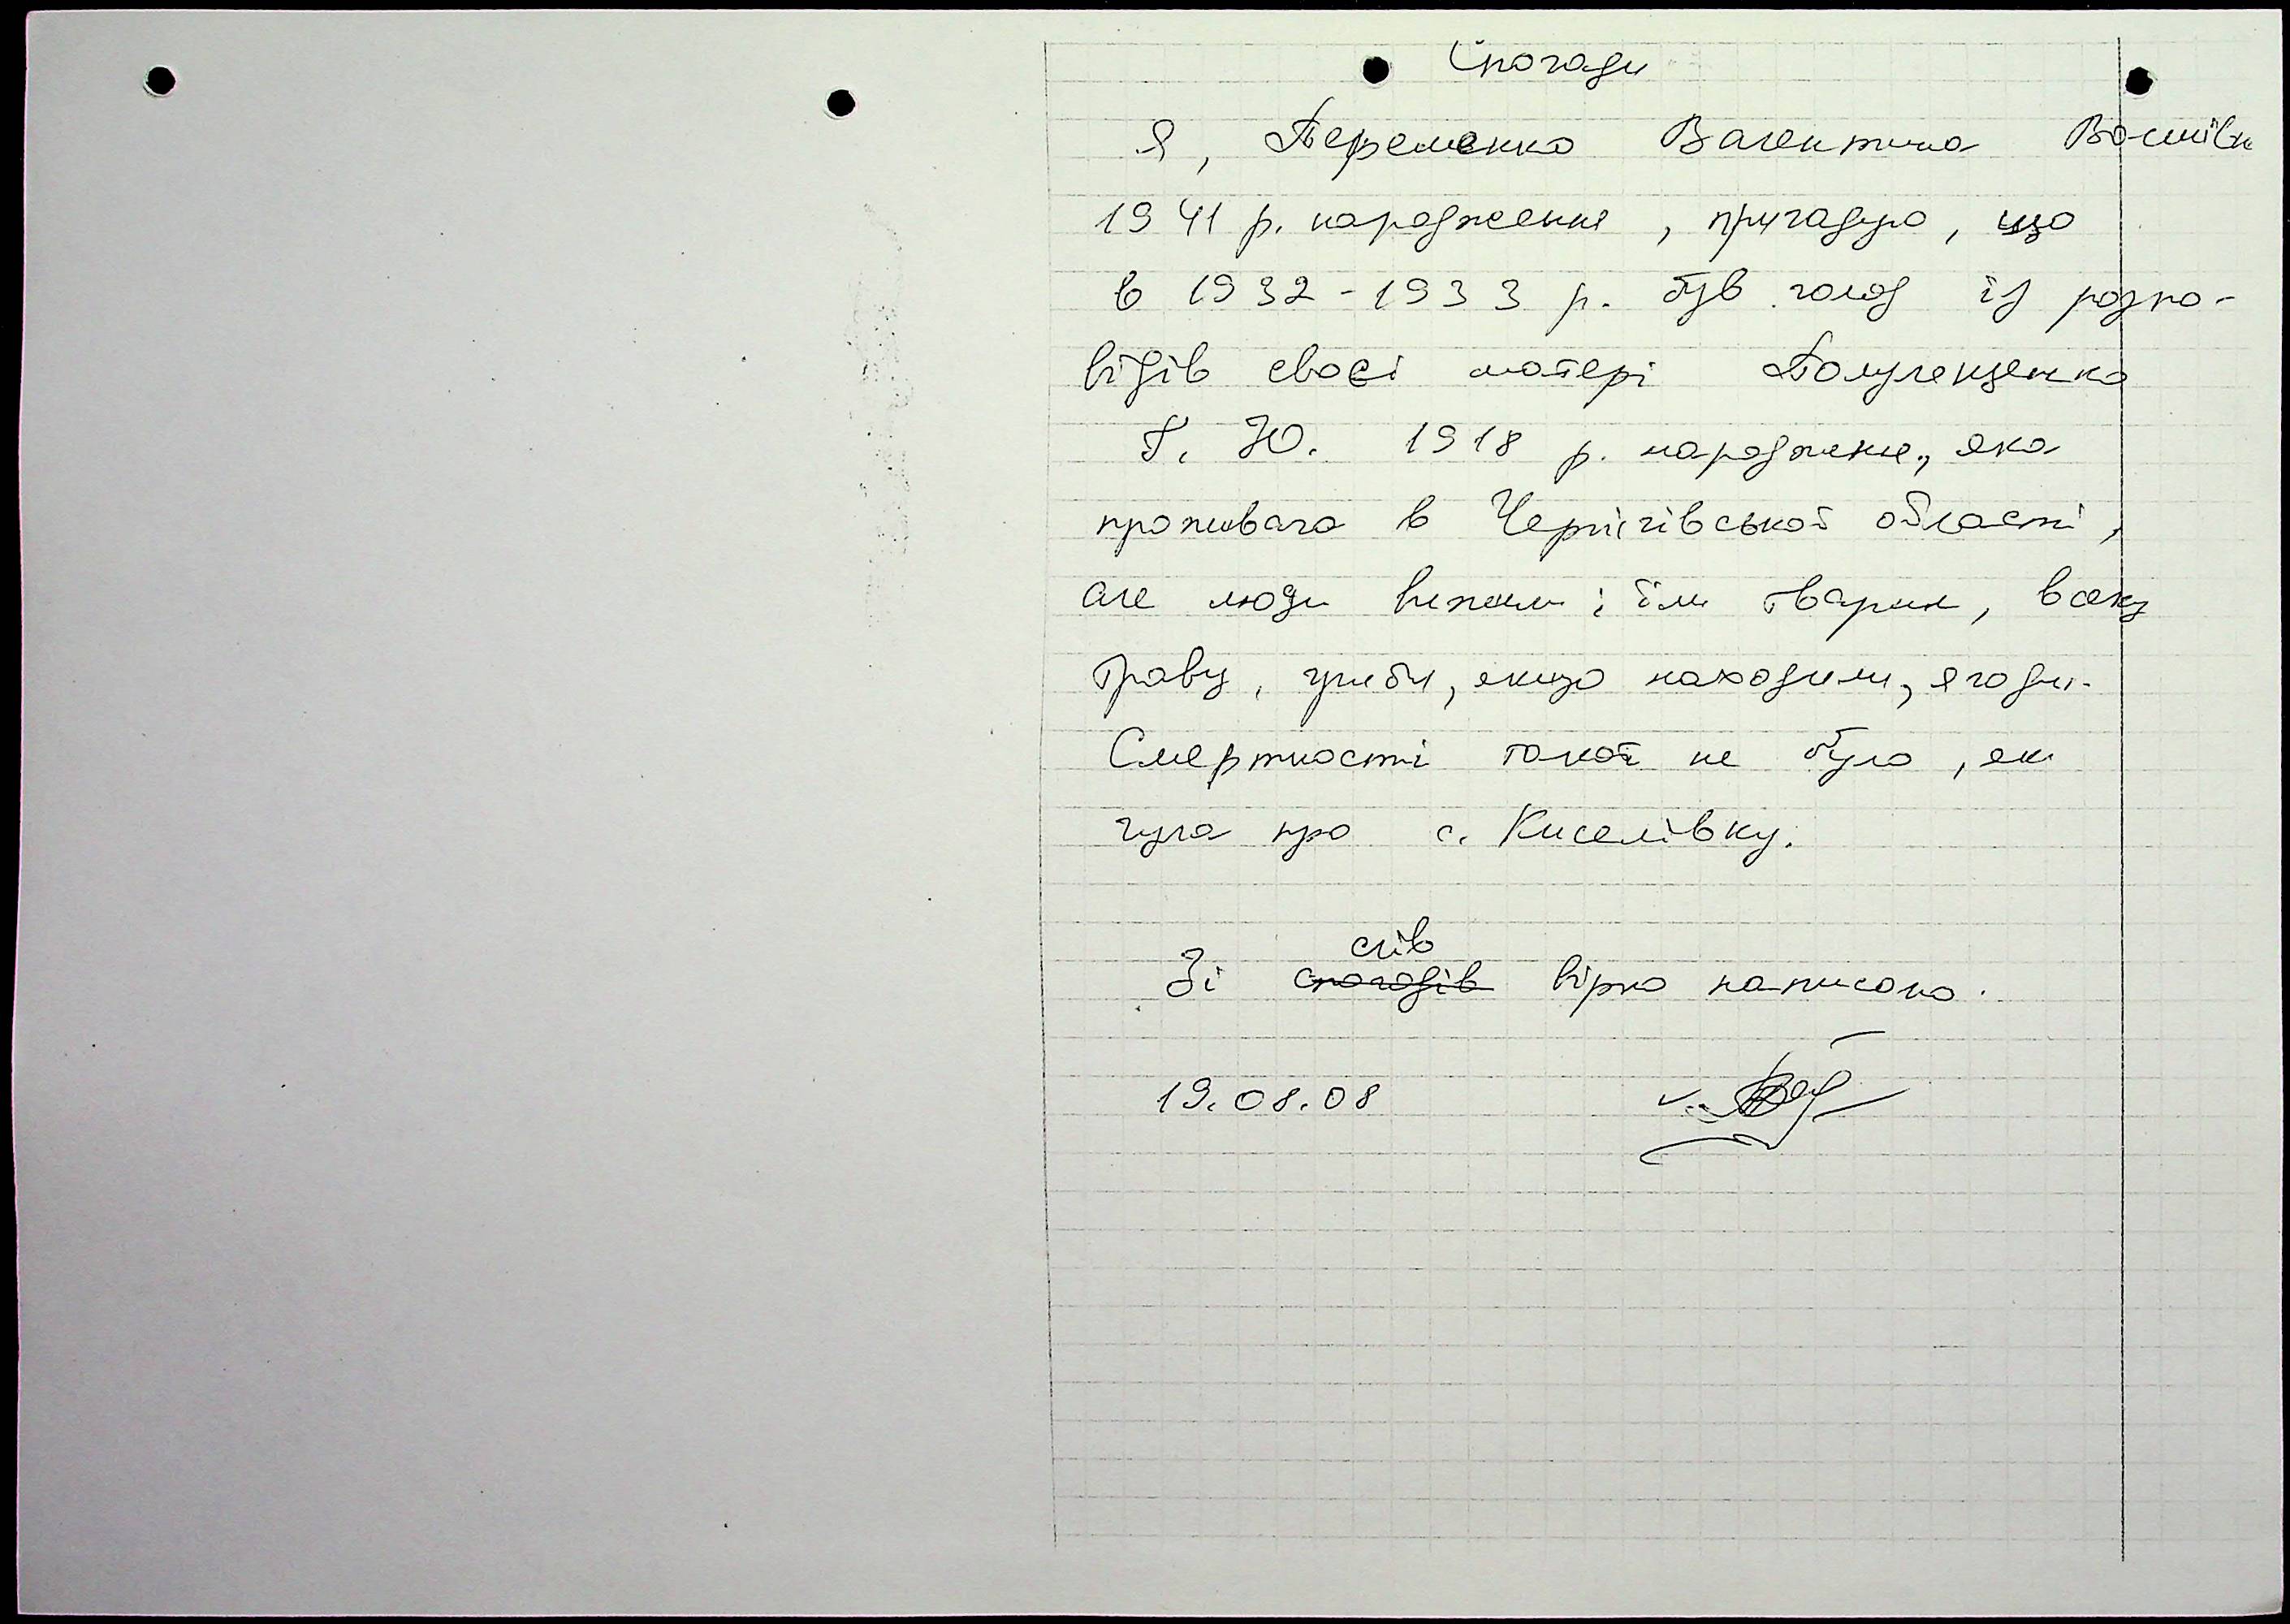 Спогади
Я, Перемenко Валентина Василівн
1941 р. народження, пригадую, що
в 1932-1933 р. був голод із розпо-
відів своєї матері Полуленценко
Г. Ю. 1918 р. народжен., яка
проживала в Чернігівської області,
але люди вижили; їли тварин, всяку
траву, гриби, якщо находили, ягоди.
Смертності такої не було, як
чула про с. Киселівку.
слів
Зі спогадів вірно написано.
19.08.08